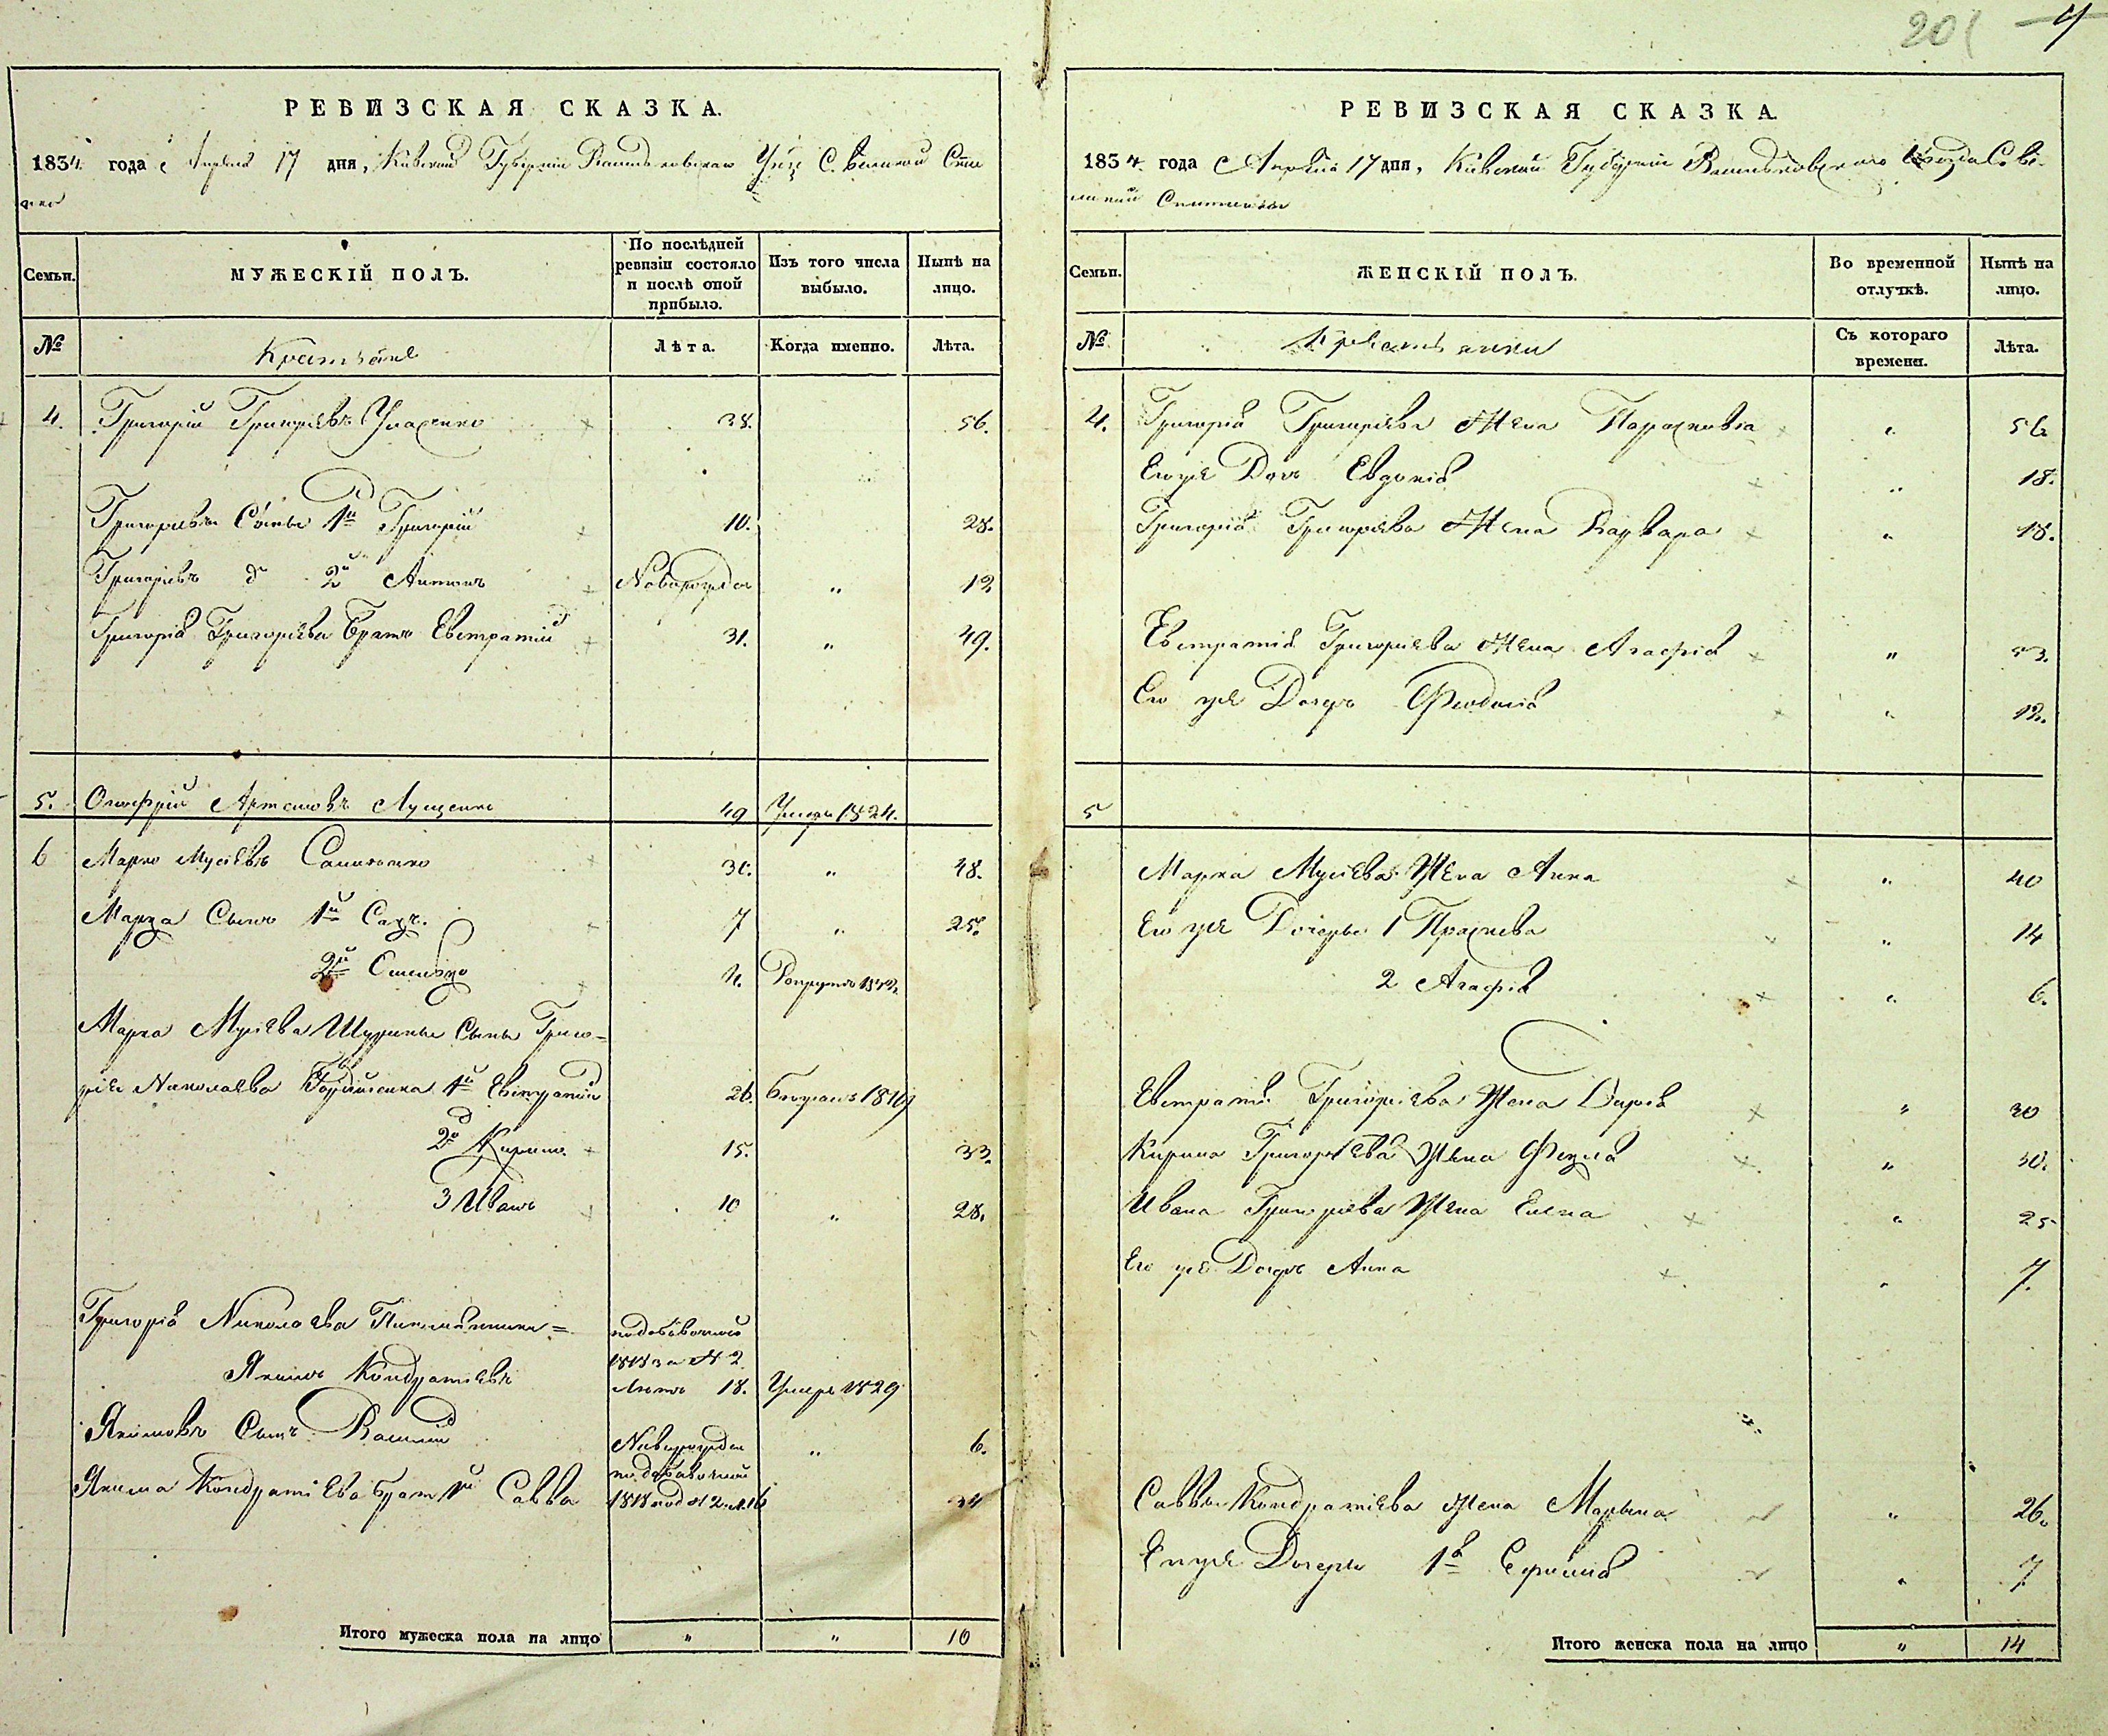 201 4
РЕВИЗСКАЯ СКАЗКА.
1834. года Апреля 17 дня, Кіевской Губерніи Васильковскаго
Семьи.
МУЖЕСКІЙ ПОЛЪ.
По послѣдней ревизіи состояло и послѣ оной прибыло.
Изъ того числа выбыло.
Нынѣ на лицо.
№
Крестьяне
Лѣта.
Когда именно.
Лѣта.
4. Григорій Григоріевъ 38. 56.
Григорьевы Сыны 1й Григорій 10. 28.
Григоріевъ 2й Антонъ Новорожден " 12
Григорія Григоріева Братъ Евстратій 31. " 49.
5. Онофрій Артемовъ Лущенко 49 Умеръ 1824.
6 Марко Мусіевъ 30. " 48.
Марка Сынъ 1й 7 " 25.
2й 4. Рекрутъ
Марка Мусіева Шурины Сыны Григо=
рія Николаева 1й Евстратій 26. 1819
2й Кирило 15. 33.
3 Иванъ 10 " 28.
Григорія Николаева
по добавочной
1818 за № 2
Якимъ Кондратіевъ
лѣтъ 18. Умеръ 1829
Якимовъ Сынъ Василій Новорожден " 6.
по добавочной
Якима Кондратіева братъ 1й Савва 1818 под № 2 34
Итого мужеска пола на лицо " " 10
РЕВИЗСКАЯ СКАЗКА.
1834. года Апрѣля 17 дня, Кіевской Губерніи Васильковскаго уѣзда Се ве-
ликой
Семьи.
ЖЕНСКІЙ ПОЛЪ.
Во временной отлучкѣ.
Нынѣ на лицо.
№
Крестьянки
Съ котораго времени.
Лѣта.
4. Григорія Григоріева Жена Парасковія "
Его же Доч Евдокія " 18.
Григорія Григоріева Жена Варвара " 18.
Евстратія Григоріева Жена Агафія " 53.
Его же Дочерь Феодосія " 12.
5
Марка Мусіева Жена Анна " 40
Его же Дочеры 1 " 14
2 Агафія " 6.
Евстратія Григоріева Жена Дарія " 30
Кирила Григоріева Жена Фекла " 30.
Ивана Григоріева Жена Елена " 25
Его же Дочерь Анна " 7.
Саввы Кондратіева Жена Марына " 26.
Его же Дочери 1я " 7
Итого женска пола на лицо " 14